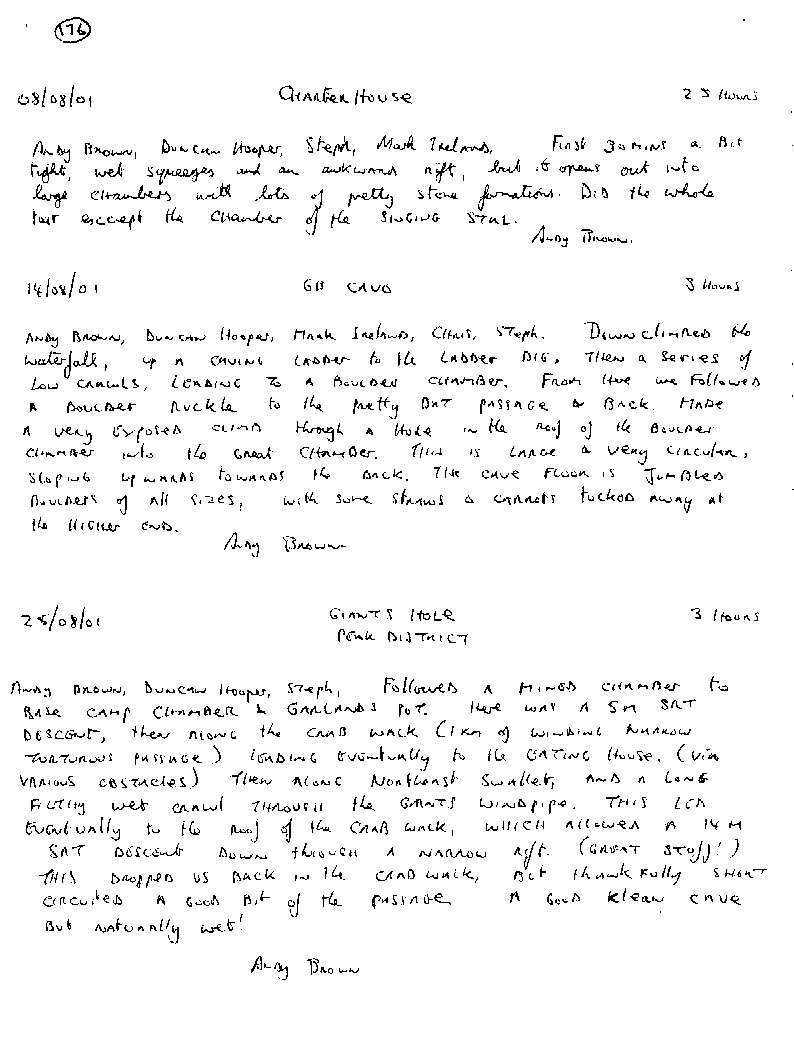 176
08/08/01 CHARTER HOUSE 2 5 Hours
Andy Brown, Duncan Hooper, Steph, Mark Ireland, First 30 mins a Bit
tight, wet squeezes and an awkward rift, but it opens out into
large chambers with lots of pretty stone formations. Did the whole
tour esccept the Chamber of the SINGING STAL.
Andy Brown.
14/08/01 GB CAVE 3 Hours
Andy Brown, Duncan Hooper, Mark Ireland, Chris, Steph. Down climbed the
waterfall, up a caving ladder to the LADDER DIG, Then a series of
low crawls, leading to a Boulder chamber. From there we followed
a Boulder Ruckle to the pretty BAT PASSAGE & Back. MADE
A very exposed climb through a Hole in the roof of the Boulder
chamber into the Great Chamber. This is Large & very circular,
sloping upwards towards the Back. The cave floor is Jumbled
Boulders of all sizes, with some straws & carrots tucked away at
the Higher end.
Andy Brown
25/08/01 GIANTS HOLE 3 Hours
PEAK DISTRICT
Andy Brown, Duncan Hooper, Steph, Followed a MINED chamber to
BASE CAMP CHAMBER & GARLANDS POT. Here was a 5m SRT
DESCENT, then along the CRAB WALK (1km of winding narrow
torturous passage) leading eventually to the EATING House. (via
various obstacles) Then along Northeast Swallet, and a long
filthy wet crawl through the GIANTS WINDPIPE. This led
eventually to the roof of the CRAB WALK, which allowed a 14m
SRT DESCENT down through a narrow rift. (GREAT STUFF!)
THIS dropped us back in the CRAB WALK, But thankfully short
circuited a good bit of the passage A Good klean cave
But naturally wet!
Andy Brown